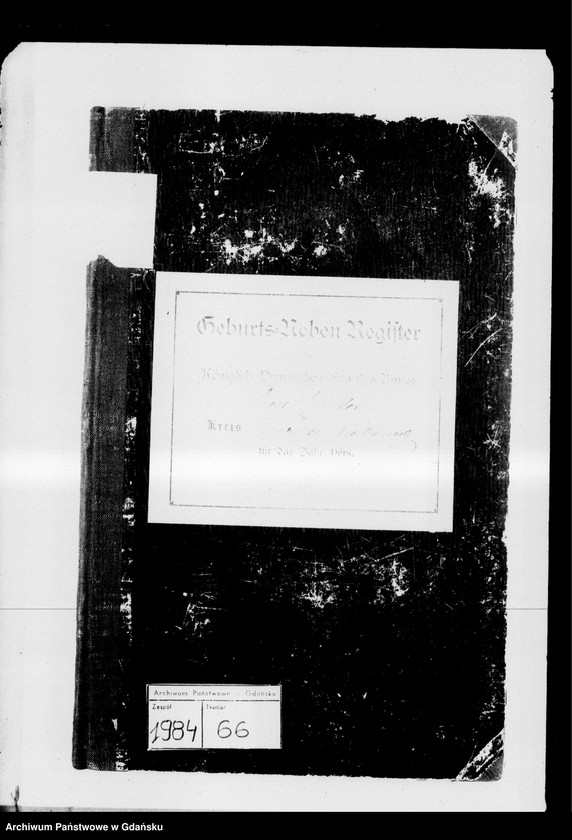 Geburts-Neben-Register
Königlich Preußischen Standes-Amtes
Kreis
für das Jahr 1898.
Archiwum Państwowe w Gdańsku
Zespół Numer
1984 66
Archiwum Państwowe w Gdańsku